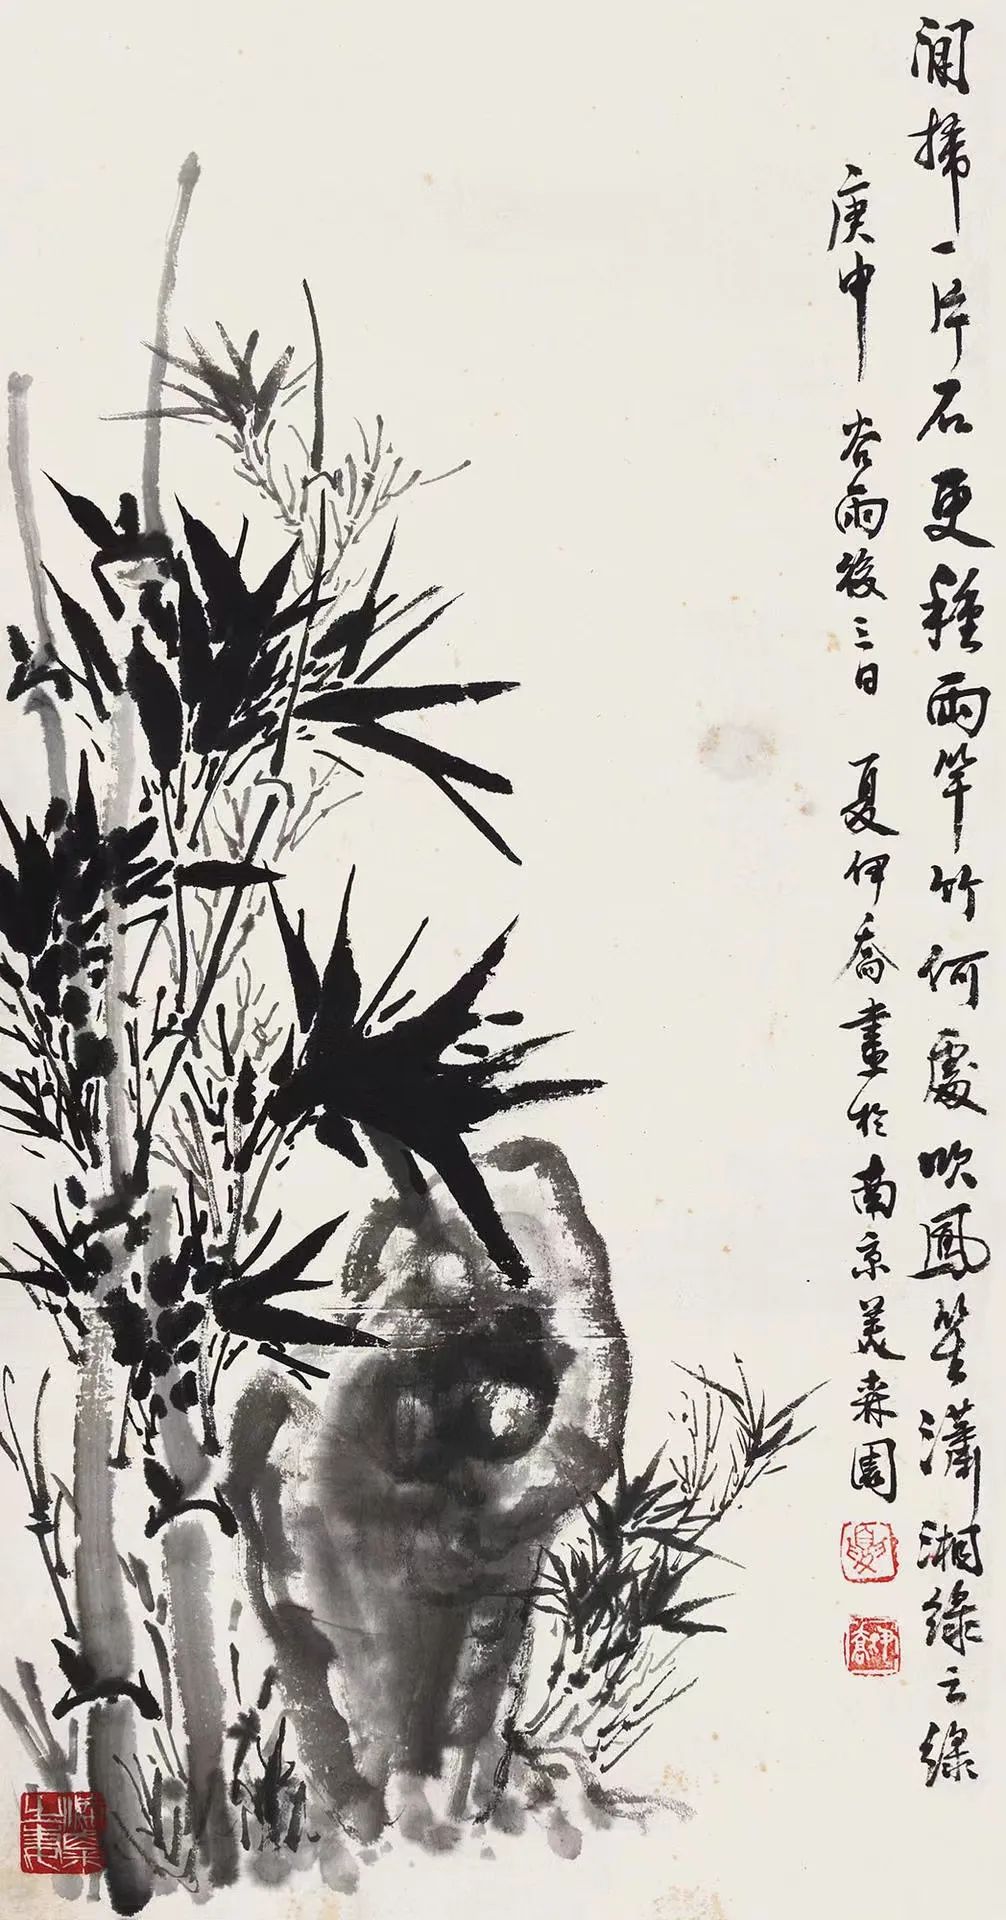 閒掃一片石更種兩竿竹何處吹鳳笙瀟湘綠云綠
庚申谷雨後三日夏伊喬畫於南京美森園
夏
伊喬